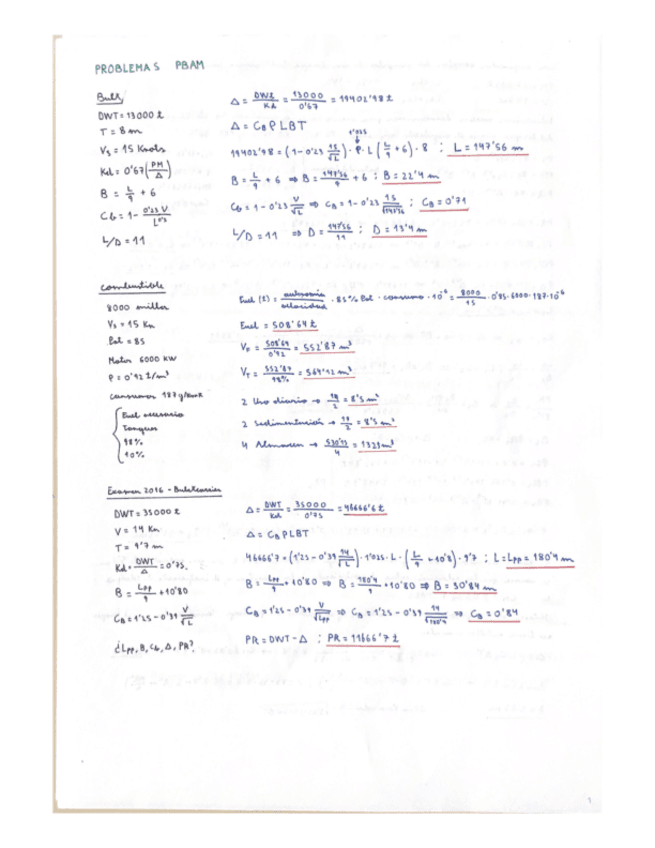 PROBLEMAS PBAM
Bulk
DWT = 13000 t
T = 8 m
Vs = 15 Knots
Kd = 0'67 (PM/Δ)
B = L/9 + 6
Cb = 1 - 0'23 V/L^0'5
L/D = 11
Δ = DWT/Kd = 13000/0'67 = 19402'98 t
Δ = CB ρ LBT
1'025
19402'98 = (1 - 0'23 15/√L) · ρ · L (L/9 + 6) · 8 ; L = 147'56 m
B = L/9 + 6 ⇒ B = 147'56/9 + 6 ; B = 22'4 m
Cb = 1 - 0'23 V/√L ⇒ CB = 1 - 0'23 15/√147'56 ; CB = 0'71
L/D = 11 ⇒ D = 147'56/11 ; D = 13'4 m
combustible
8000 millas
Vs = 15 Kn
Bot = 85
Motor 6000 kW
ρ = 0'92 t/m³
consumo 187 g/kWh
Fuel
Tanques
98%
10%
Fuel (t) = autonomía/velocidad · 85% Bot · consumo · 10^-6 = 8000/15 · 0'85 · 6000 · 187 · 10^-6
Fuel = 508'64 t
VF = 508'64/0'92 = 552'87 m³
VT = 552'87/98% = 564'12 m³
2 Uso diario → /2 = 8'5 m³
2 Sedimentación → /2 = 8'5 m³
4 Almacen → 530'12/4 = m³
Examen 2016 -
DWT = 35000 t
V = 14 Kn
T = 9'7 m
Kd = DWT/Δ = 0'75
B = Lpp/9 + 10'80
CB = 1'25 - 0'39 V/√L
¿Lpp, B, Cb, Δ, PR?
Δ = DWT/Kd = 35000/0'75 = 46666'6 t
Δ = CB ρ LBT
46666'7 = (1'25 - 0'39 14/√L) · 1'025 · L · (L/9 + 10'8) · 9'7 ; L = Lpp = 180'4 m
B = Lpp/9 + 10'80 ⇒ B = 180'4/9 + 10'80 ⇒ B = 30'84 m
CB = 1'25 - 0'39 V/√Lpp ⇒ CB = 1'25 - 0'39 14/√180'4 ⇒ CB = 0'84
PR = DWT - Δ ; PR = 11666'7 t
1